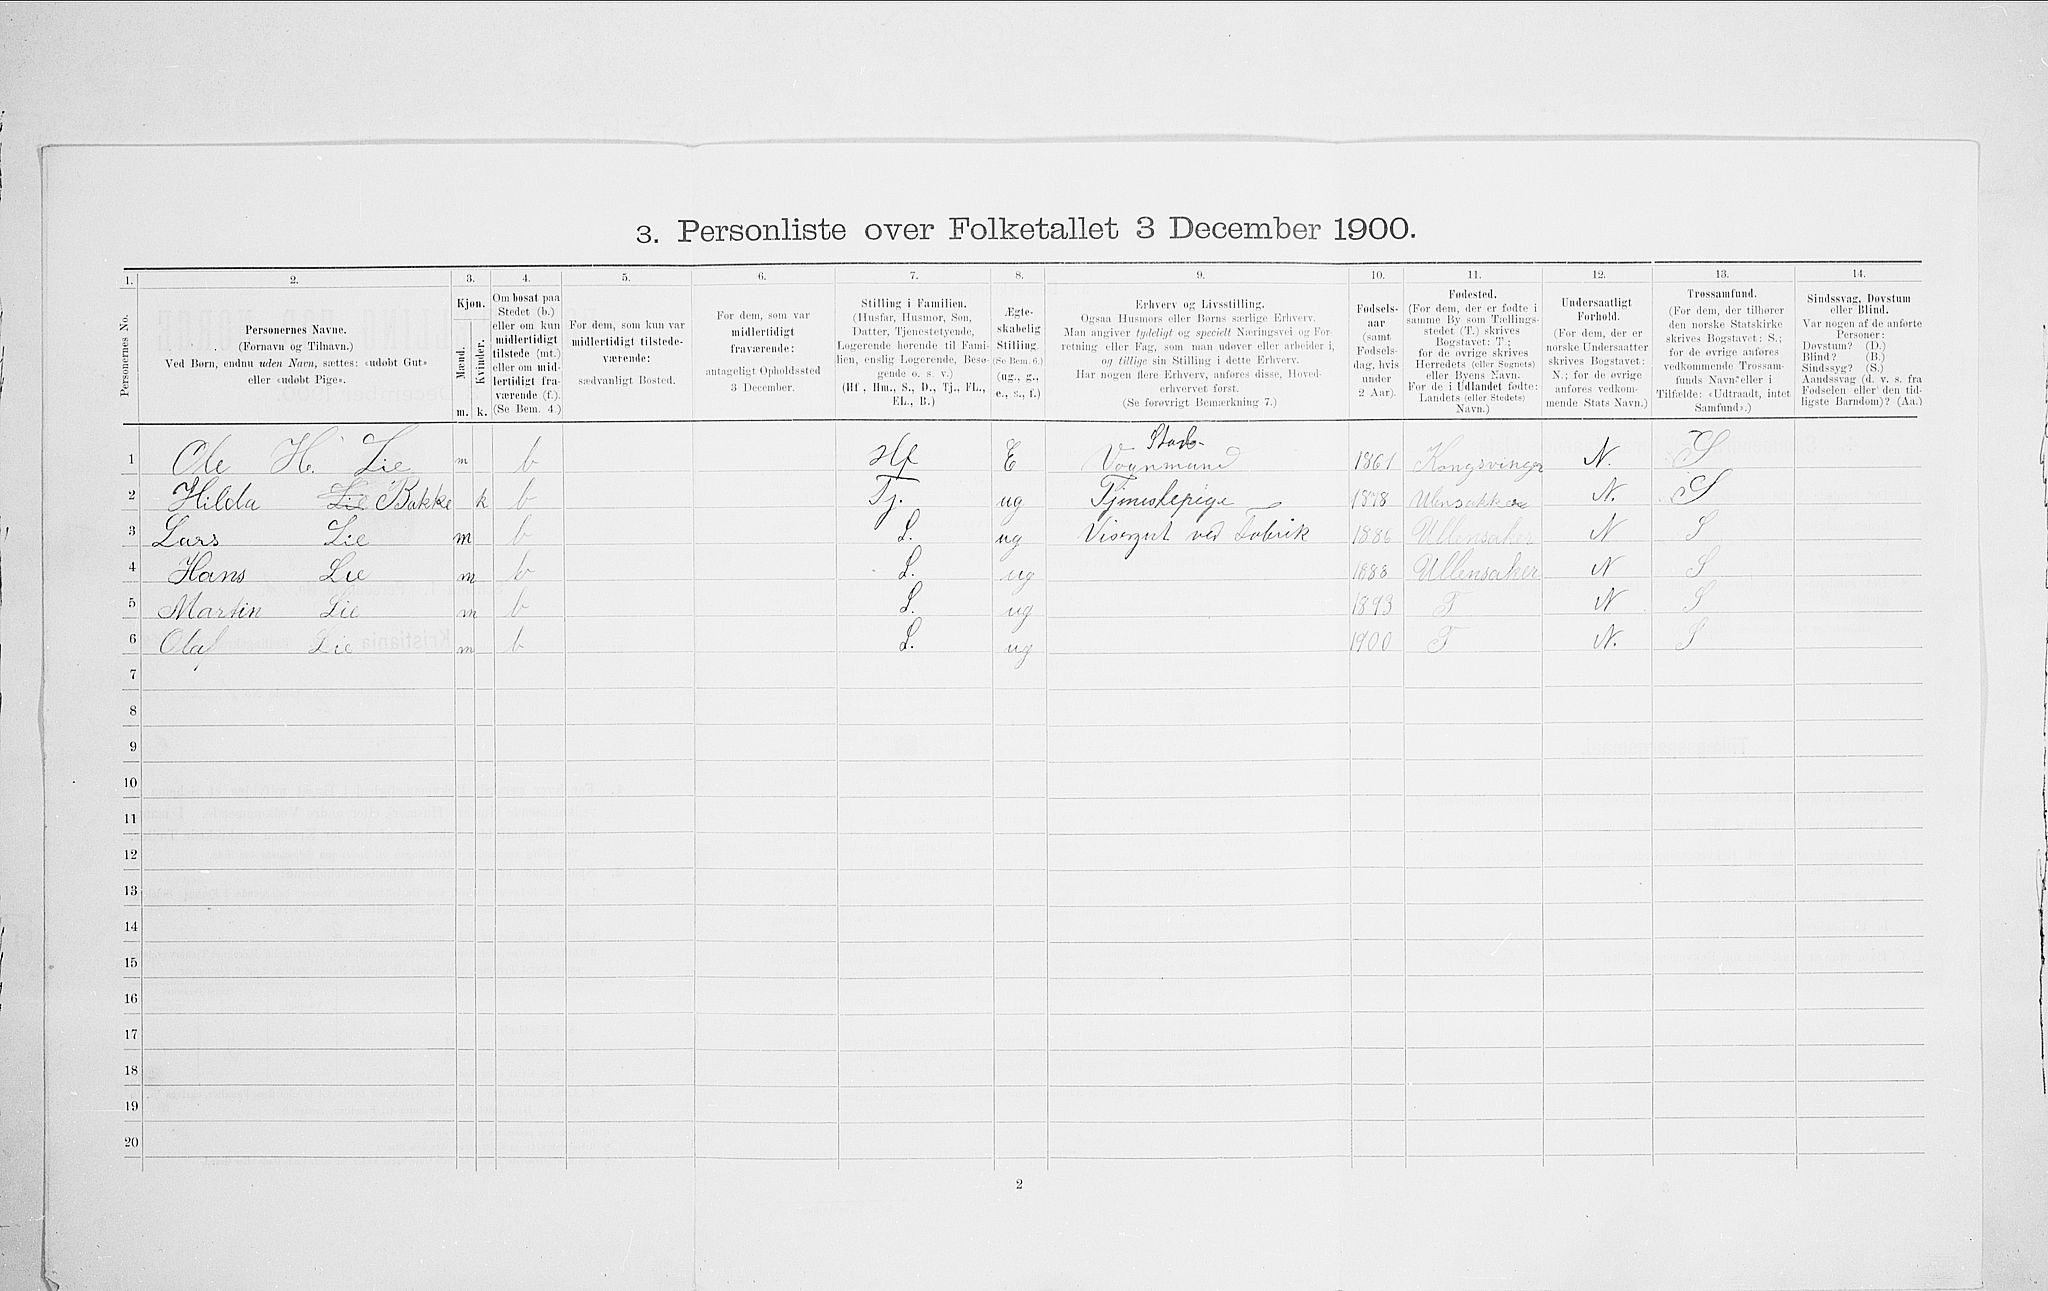 3. Personliste over Folketallet 3 December 1900.
1. 2. 3. 4. 5. 6. 7. 8. 9. 10. 11. 12. 13. 14.
Personernes No.
Personernes Navne.
(Fornavn og Tilnavn.)
Ved Børn, endnu uden Navn, sættes: «udøbt Gut»
eller «udøbt Pige».
Kjøn.
Mænd.
Kvinder.
m. k.
Om bosat paa
Stedet (b.)
eller om kun
midlertidigt
tilstede (mt.)
eller om mid-
lertidigt fra-
værende (f.).
(Se Bem. 4.)
For dem, som kun var
midlertidigt tilstede-
værende:
sædvanligt Bosted.
For dem, som var
midlertidigt
fraværende:
antageligt Opholdssted
3 December.
Stilling i Familien.
(Husfar, Husmor, Søn,
Datter, Tjenestetyende,
Logerende hørende til Fami-
lien, enslig Logerende, Besø-
gende o. s. v.)
(Hf., Hm., S., D., Tj., FL.,
EL., B.)
Ægte-
skabelig
Stilling.
(Se Bem. 6.)
(ug., g.,
e., s., f.)
Erhverv og Livsstilling.
Ogsaa Husmors eller Børns særlige Erhverv.
Man angiver tydeligt og specielt Næringsvei og For-
retning eller Fag, som man udøver eller arbeider i,
og tillige sin Stilling i dette Erhverv.
Har nogen flere Erhverv, anføres disse, Hoved-
erhvervet først.
(Se forøvrigt Bemærkning 7.)
Fødsels-
aar
(samt
Fødsels-
dag, hvis
under
2 Aar).
Fødested.
(For dem, der er fødte i
samme By som Tællings-
stedet (T.) skrives
Bogstavet: T;
for de øvrige skrives
Herredets (eller Sognets)
eller Byens Navn.
For de i Udlandet fødte:
Landets (eller Stedets)
Navn.)
Undersaatligt
Forhold.
(For dem, der er
norske Undersaatter
skrives Bogstavet:
N.; for de øvrige
anføres vedkom-
mende Stats Navn.)
Trossamfund.
(For dem, der tilhører
den norske Statskirke
skrives Bogstavet: S.;
for de øvrige anføres
vedkommende Trossam-
funds Navn eller i
Tilfælde: «Udtraadt, intet
Samfund».)
Sindssvag, Døvstum
eller Blind.
Var nogen af de anførte
Personer:
Døvstum? (D.)
Blind? (B.)
Sindssyg? (S.)
Aandssvag (d. v. s. fra
Fødselen eller den tid-
ligste Barndom)? (Aa.)
1 Ole H. Lie m b Hf E Vognmand 1861 Kongsvinger N. S
2 Hilda Lie Bakke k b Tj. ug Tjenestepige 1878 N. S
3 Lars Lie m b L. ug Visergut ved Fabrik 1886 Ullensaker N S
4 Hans Lie m b L. ug 1888 Ullensaker N S
5 Martin Lie m b L. ug 1893 T N S
6 Olaf Lie m b L. ug 1900 T N. S
7
8
9
10
11
12
13
14
15
16
17
18
19
20
2